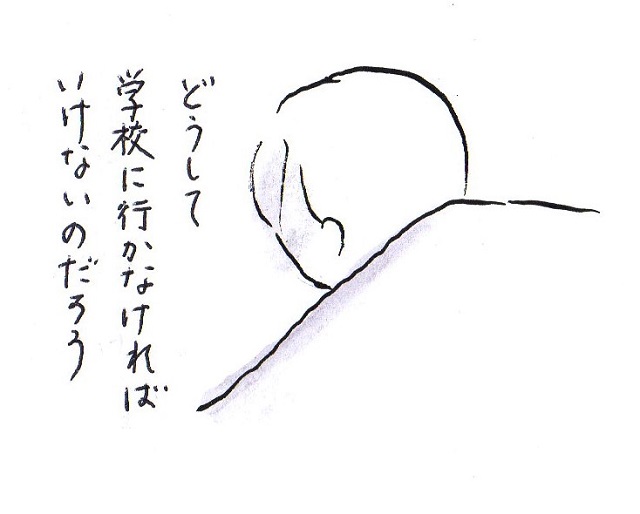 どうして
学校に行かなければ
いけないのだろう